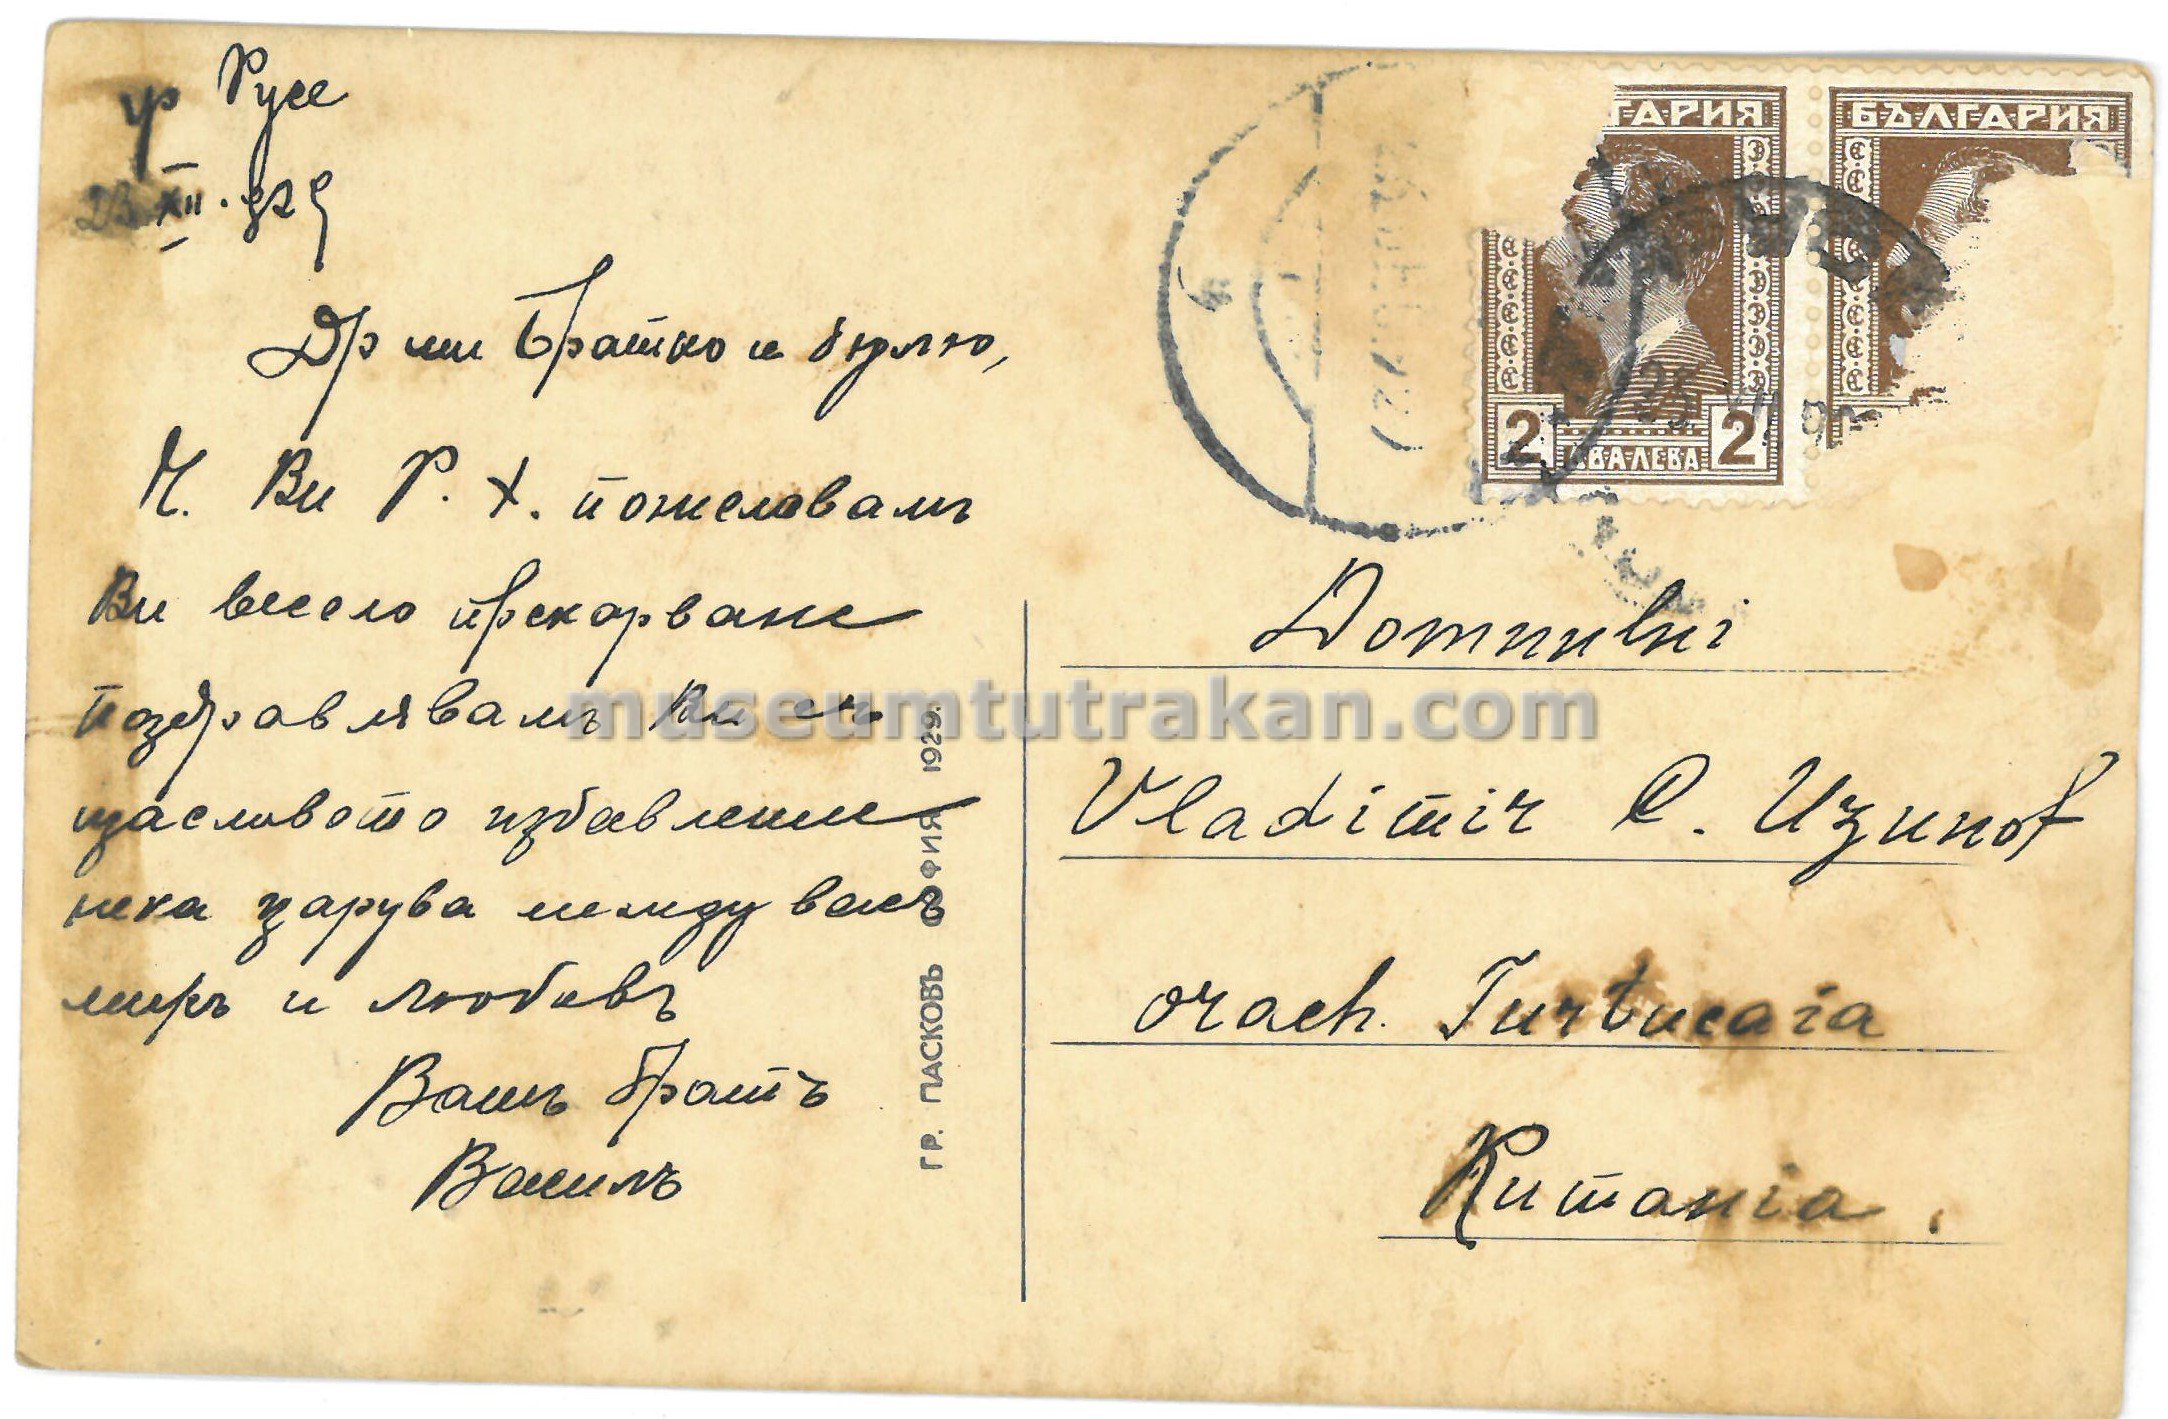 гр Русе
23. XII. 929
Др ми Братко и булю,
Ч. Ви Р. Х. пожелавамъ
Ви весело прекарване
поздравлявамъ Ви съ
щасливото избавление
нека царува между васъ
миръ и любовь
Вашъ братъ
Василъ
ГР. ПАСКОВЪ СОФИЯ 1929.
ГАРИЯ
БЪЛГАРИЯ
2 ДВА ЛЕВА 2
Domnului
Vladimir C. Uzunof
orach. Turtucaia
Rumania.
museumtutrakan.com